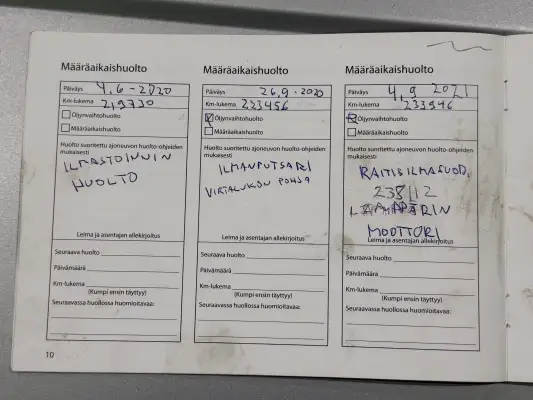 Määräaikaishuolto
Päiväys 4.6-2020
Km-lukema 219730
Öljynvaihtohuolto
Määräaikaishuolto
Huolto suoritettu ajoneuvon huolto-ohjeiden
mukaisesti
ILMASTOINNIN
HUOLTO
Leima ja asentajan allekirjoitus
Seuraava huolto
Päivämäärä
Km-lukema
(Kumpi ensin täyttyy)
Seuraavassa huollossa huomioitavaa:
10
Määräaikaishuolto
Päiväys 26.9.2020
Km-lukema 233456
Öljynvaihtohuolto
Määräaikaishuolto
Huolto suoritettu ajoneuvon huolto-ohjeiden
mukaisesti
ILMANPUTSARI
VIRTALUKON POHJA
Leima ja asentajan allekirjoitus
Seuraava huolto
Päivämäärä
Km-lukema
(Kumpi ensin täyttyy)
Seuraavassa huollossa huomioitavaa:
Määräaikaishuolto
Päiväys 4.9 2021
Km-lukema 233946
Öljynvaihtohuolto
Määräaikaishuolto
Huolto suoritettu ajoneuvon huolto-ohjeiden
mukaisesti
RAITISILMASUOD.
238112
MOOTTORI
Leima ja asentajan allekirjoitus
Seuraava huolto
Päivämäärä
Km-lukema
(Kumpi ensin täyttyy)
Seuraavassa huollossa huomioitavaa: